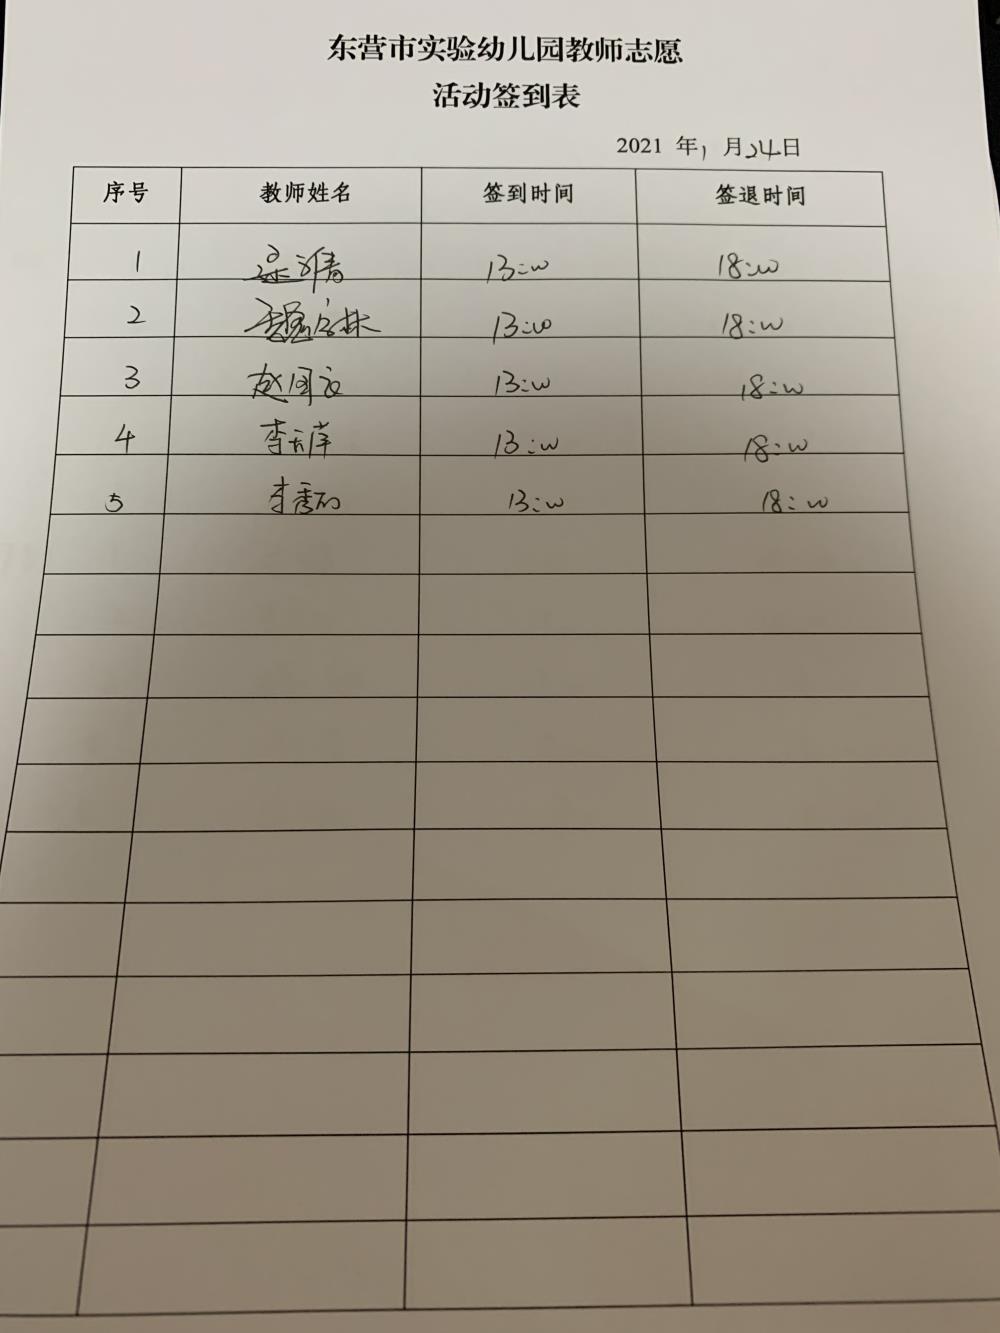 东营市实验幼儿园教师志愿
活动签到表
2021 年 1 月 24 日
序号 教师姓名 签到时间 签退时间
1 13:00 18:00
2 13:00 18:00
3 13:00 18:00
4 李 13:00 18:00
5 李秀 13:00 18:00